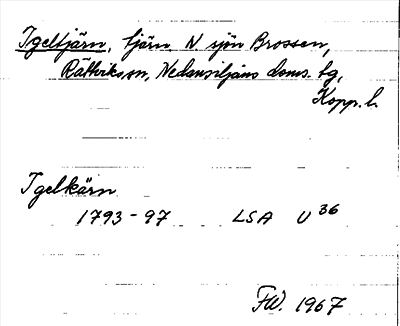 Igeltjärn, tjärn N sjön Brossen,
Rättviks sn, Nedansiljans doms. tg,
Kopp. l.
Igelkärn
1793-97 LSA U 36
FW. 1967